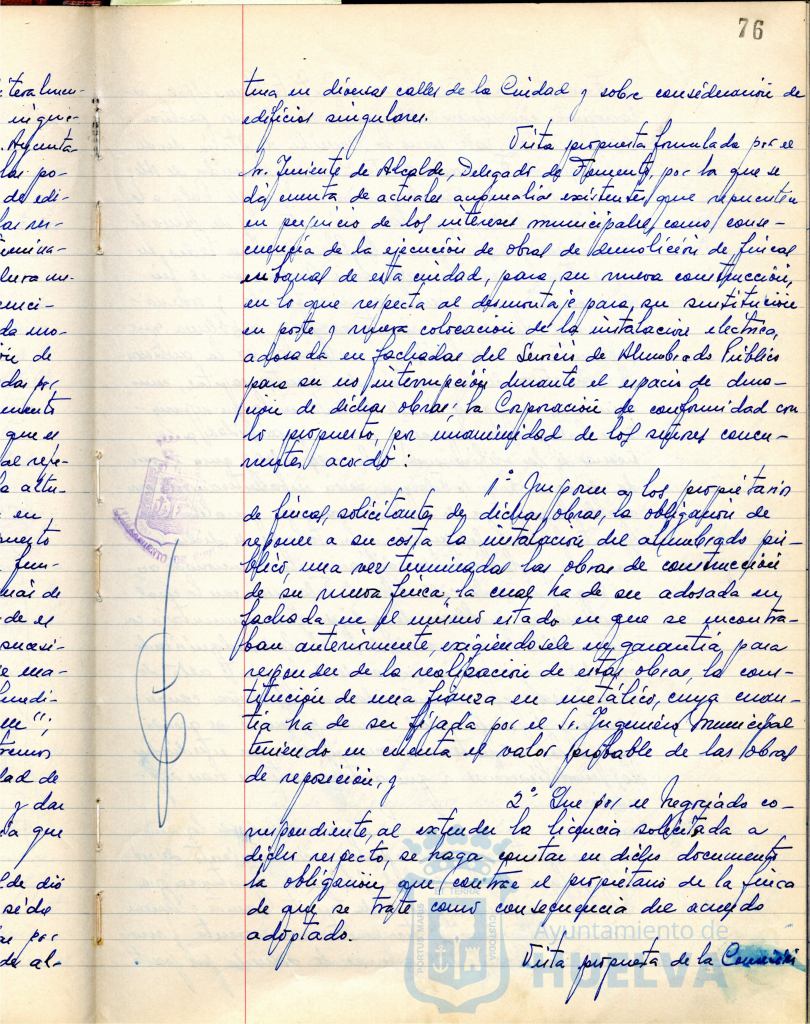 76
tura en diversas calles de la Ciudad y sobre consideración de
edificios singulares.
Vista propuesta formulada por el
Sr. Teniente de Alcalde, Delegado de Fomento, por la que se
dá cuenta de actuales anomalías existentes que repercuten
en perjuicio de los intereses municipales, como conse-
cuencia de la ejecución de obras de demolición de fincas
urbanas de esta ciudad, para su nueva construcción,
en lo que respecta al desmontaje para su sustitución
en poste y nueva colocación de la instalación electrica,
adosada en fachadas del Servicio de Alumbrado Público
para su no interrupción durante el espacio de dura-
ción de dichas obras; la Corporación de conformidad con
lo propuesto, por unanimidad de los señores concu-
rrentes acordó:
1º Imponer a los propietarios
de fincas, solicitantes de dichas obras, la obligación de
reponer a su costa la instalación del alumbrado pú-
blico, una vez terminadas las obras de construcción
de su nueva finca, la cual ha de ser adosada en
fachada en el mismo estado en que se encontra-
ban anteriormente, exigiendosele en garantía para
responder de la realización de estas obras, la cons-
titución de una fianza en metálico, cuya cuan-
tía ha de ser fijada por el Sr. Ingeniero Municipal
teniendo en cuenta el valor probable de las obras
de reposición, y
2º Que por el Negociado co-
rrespondiente, al extender la licencia solicitada a
dicho respecto, se haga constar en dicho documento
la obligación que contrae el propietario de la finca
de que se trate como consecuencia del acuerdo
adoptado.
Vista propuesta de la Comisión
Ayuntamiento de
HUELVA